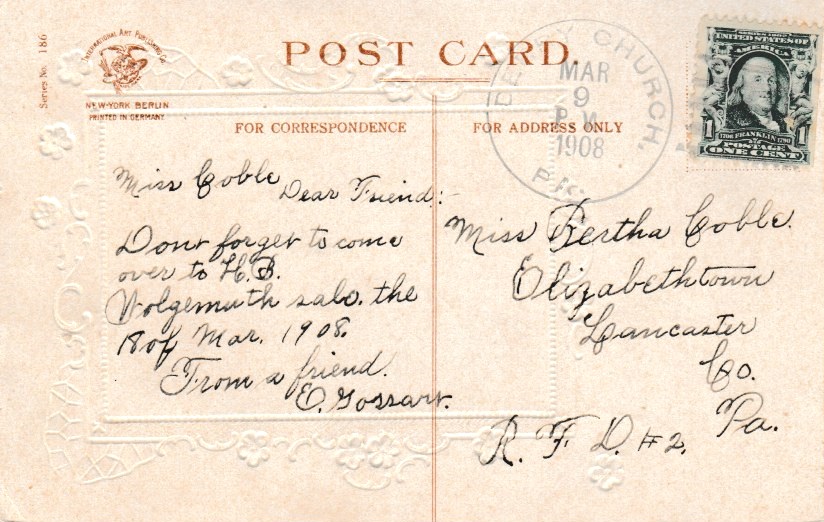 Series No. 186
INTERNATIONAL ART PUBLISHING CO.
NEW-YORK BERLIN
PRINTED IN GERMANY
POST CARD.
FOR CORRESPONDENCE
FOR ADDRESS ONLY
DERRY CHURCH,
MAR
9
P.M.
1908
PA.
SERIES 1902
UNITED STATES OF
AMERICA
1706 FRANKLIN 1790
1 POSTAGE 1
ONE CENT
Miss Coble Dear Friend:-
Dont forget to come
over to H.B.
Wolgemuth sale. the
18 of Mar. 1908.
From a friend.
E. Gossart.
Miss Bertha Coble.
Elizabethtown
Lancaster
Co.
Pa.
R. F. D. #2.